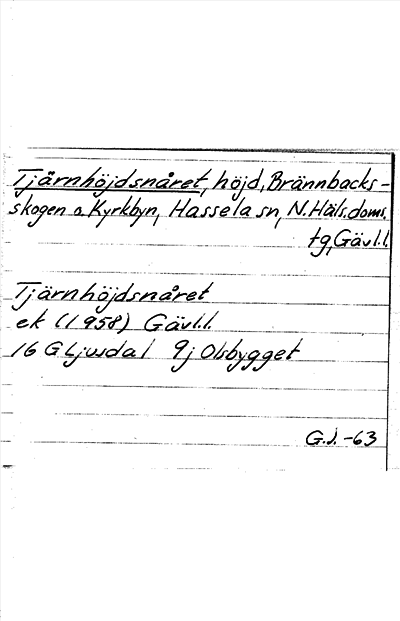 Tjärnhöjdsnåret, höjd, Brännbacks-
skogen o. Kyrkbyn, Hassela sn, N. Häls. doms.
tg, Gävl.l.
Tjärnhöjdsnåret
ek (1958) Gävl.l.
16 G Ljusdal 9j Olsbygget
G.J. -63